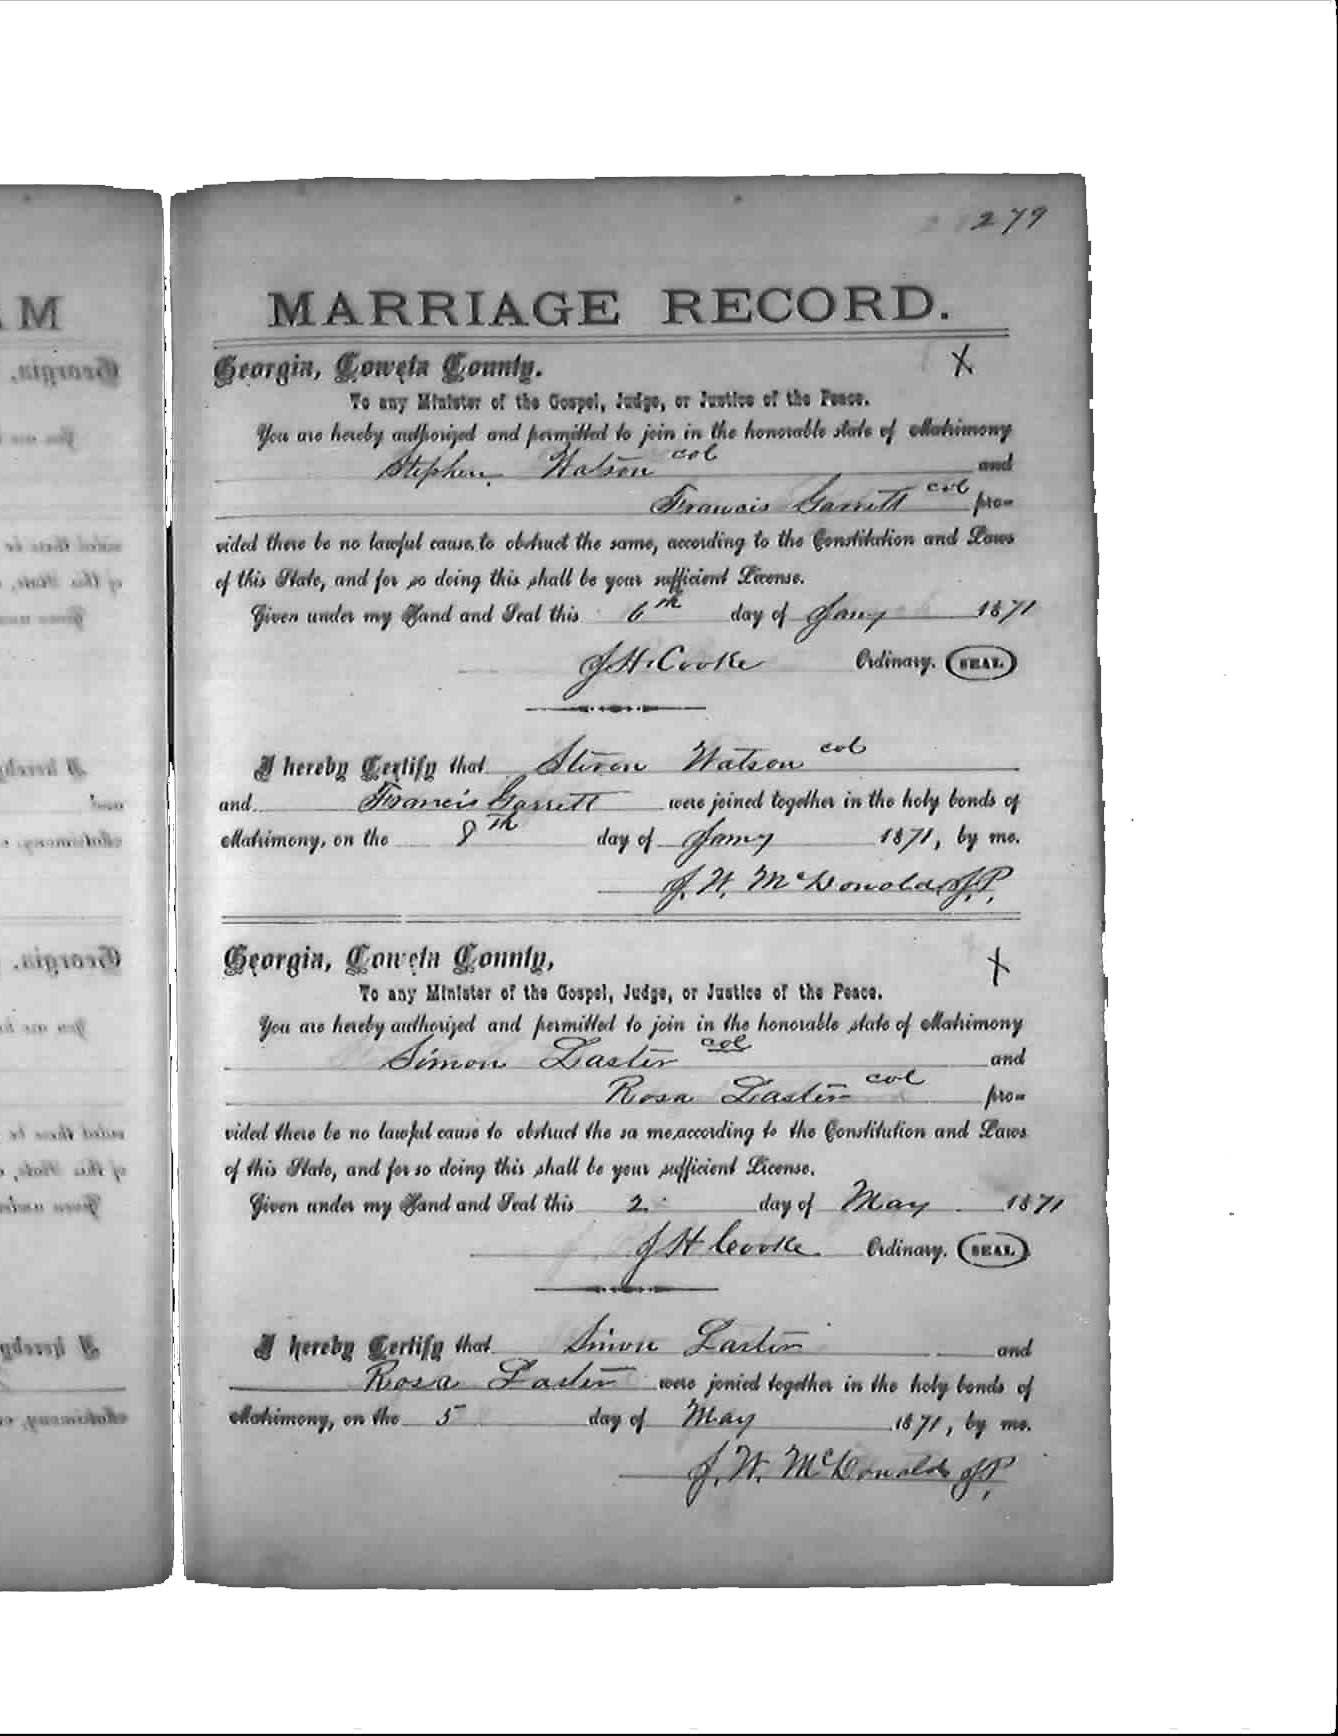 279
MARRIAGE RECORD.
Georgia, Coweta County. X
To any Minister of the Gospel, Judge, or Justice of the Peace.
You are hereby authorized and permitted to join in the honorable state of Matrimony
Stephen Watson col and
Francis Garrett col pro-
vided there be no lawful cause to obstruct the same, according to the Constitution and Laws
of this State, and for so doing this shall be your sufficient License.
Given under my Hand and Seal this 6th day of Jany 1871
J H. Cooke Ordinary. SEAL
I hereby Certify that Steven Watson col
and Francis Garrett were joined together in the holy bonds of
Matrimony, on the 8th day of Jany 1871, by me.
J. W. McDonald J.P.
Georgia, Coweta County, X
To any Minister of the Gospel, Judge, or Justice of the Peace.
You are hereby authorized and permitted to join in the honorable state of Matrimony
Simon Laster col and
Rosa Laster col pro-
vided there be no lawful cause to obstruct the sa me,according to the Constitution and Laws
of this State, and for so doing this shall be your sufficient License.
Given under my Hand and Seal this 2 day of May 1871
J H Cooke Ordinary. SEAL
I hereby Certify that Simon Laster and
Rosa Laster were jonied together in the holy bonds of
Matrimony, on the 5 day of May 1871, by me.
J. W. McDonald J.P.